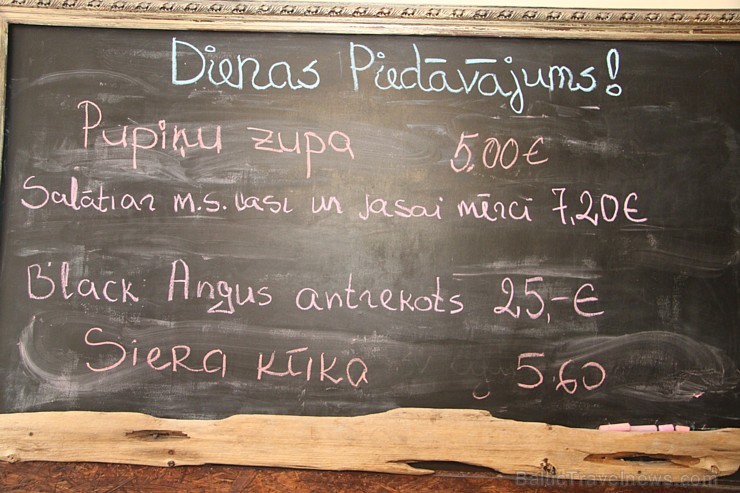 Dienas Piedāvājums!
Pupiņu zupa 5,00€
Salāti ar m.s. lasi un jasai mērci 7,20€
Black Angus antrekots 25,-€
Siera kūka 5,60
BalticTravelnews.com